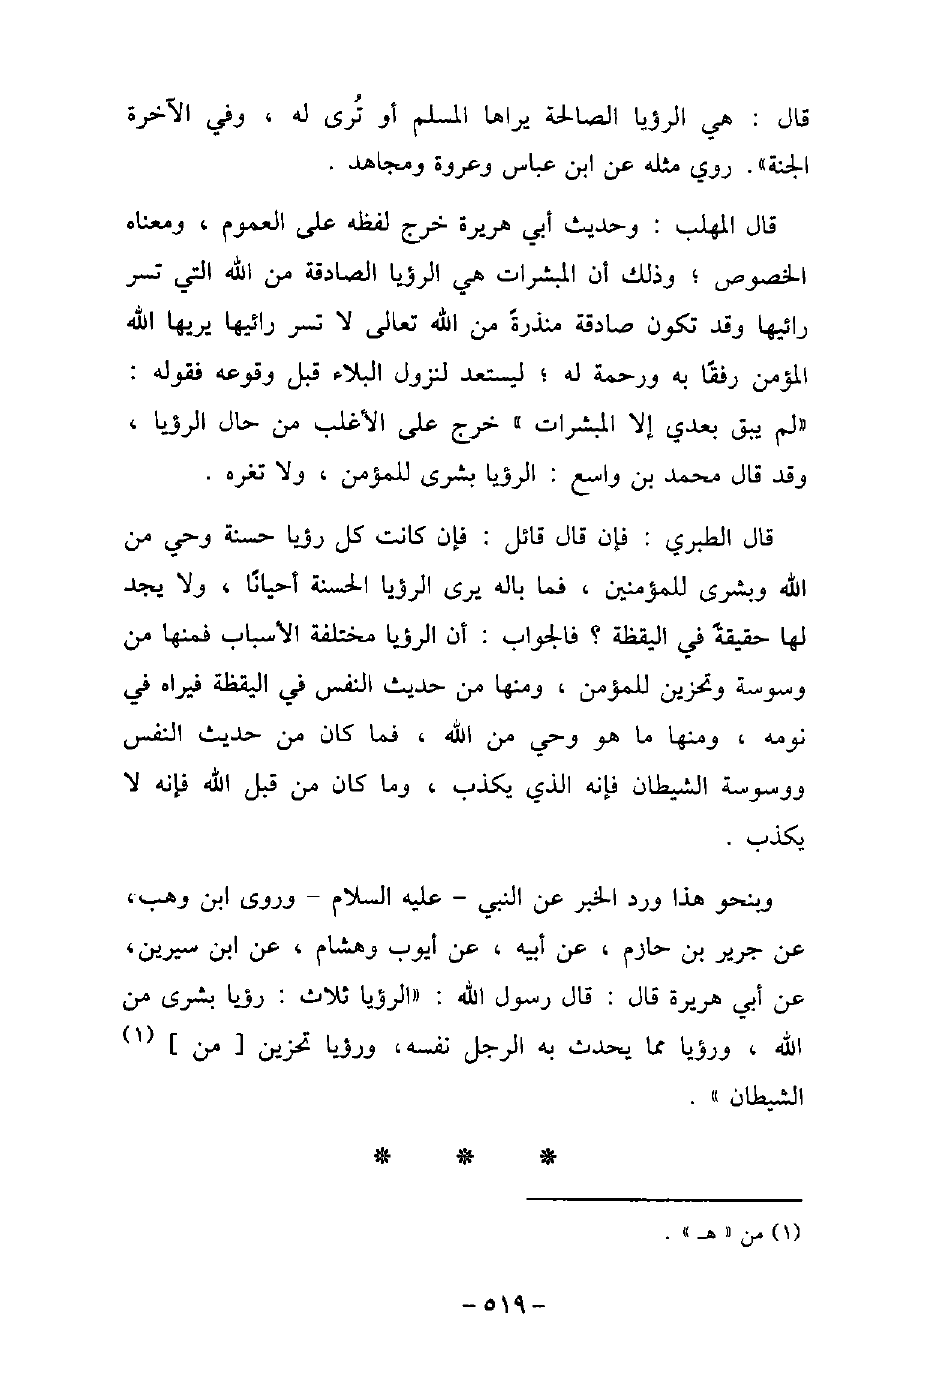 قال : هي الرؤيا الصالحة يراها المسلم أو تُرى له ، وفي الآخرة
الجنة» . روي مثله عن ابن عباس وعروة ومجاهد .
قال المهلب : وحديث أبي هريرة خرج لفظه على العموم ، ومعناه
الخصوص ؛ وذلك أن المبشرات هي الرؤيا الصادقة من الله التي تسر
رائيها وقد تكون صادقة منذرةً من الله تعالى لا تسر رائيها يريها الله
المؤمن رفقًا به ورحمة له ؛ ليستعد لنزول البلاء قبل وقوعه فقوله :
«لم يبق بعدي إلا المبشرات » خرج على الأغلب من حال الرؤيا ،
وقد قال محمد بن واسع : الرؤيا بشرى للمؤمن ، ولا تغره .
قال الطبري : فإن قال قائل : فإن كانت كل رؤيا حسنة وحي من
الله وبشرى للمؤمنين ، فما باله يرى الرؤيا الحسنة أحيانًا ، ولا يجد
لها حقيقةً في اليقظة ؟ فالجواب : أن الرؤيا مختلفة الأسباب فمنها من
وسوسة وتحزين للمؤمن ، ومنها من حديث النفس في اليقظة فيراه في
نومه ، ومنها ما هو وحي من الله ، فما كان من حديث النفس
ووسوسة الشيطان فإنه الذي يكذب ، وما كان من قبل الله فإنه لا
يكذب .
وبنحو هذا ورد الخبر عن النبي – عليه السلام – وروى ابن وهب،
عن جرير بن حازم ، عن أبيه ، عن أيوب وهشام ، عن ابن سيرين،
عن أبي هريرة قال : قال رسول الله : «الرؤيا ثلاث : رؤيا بشرى من
الله ، ورؤيا مما يحدث به الرجل نفسه، ورؤيا تحزين [ من ] (١)
الشيطان » .
* * *
(١) من « هـ » .
– ٥١٩ –